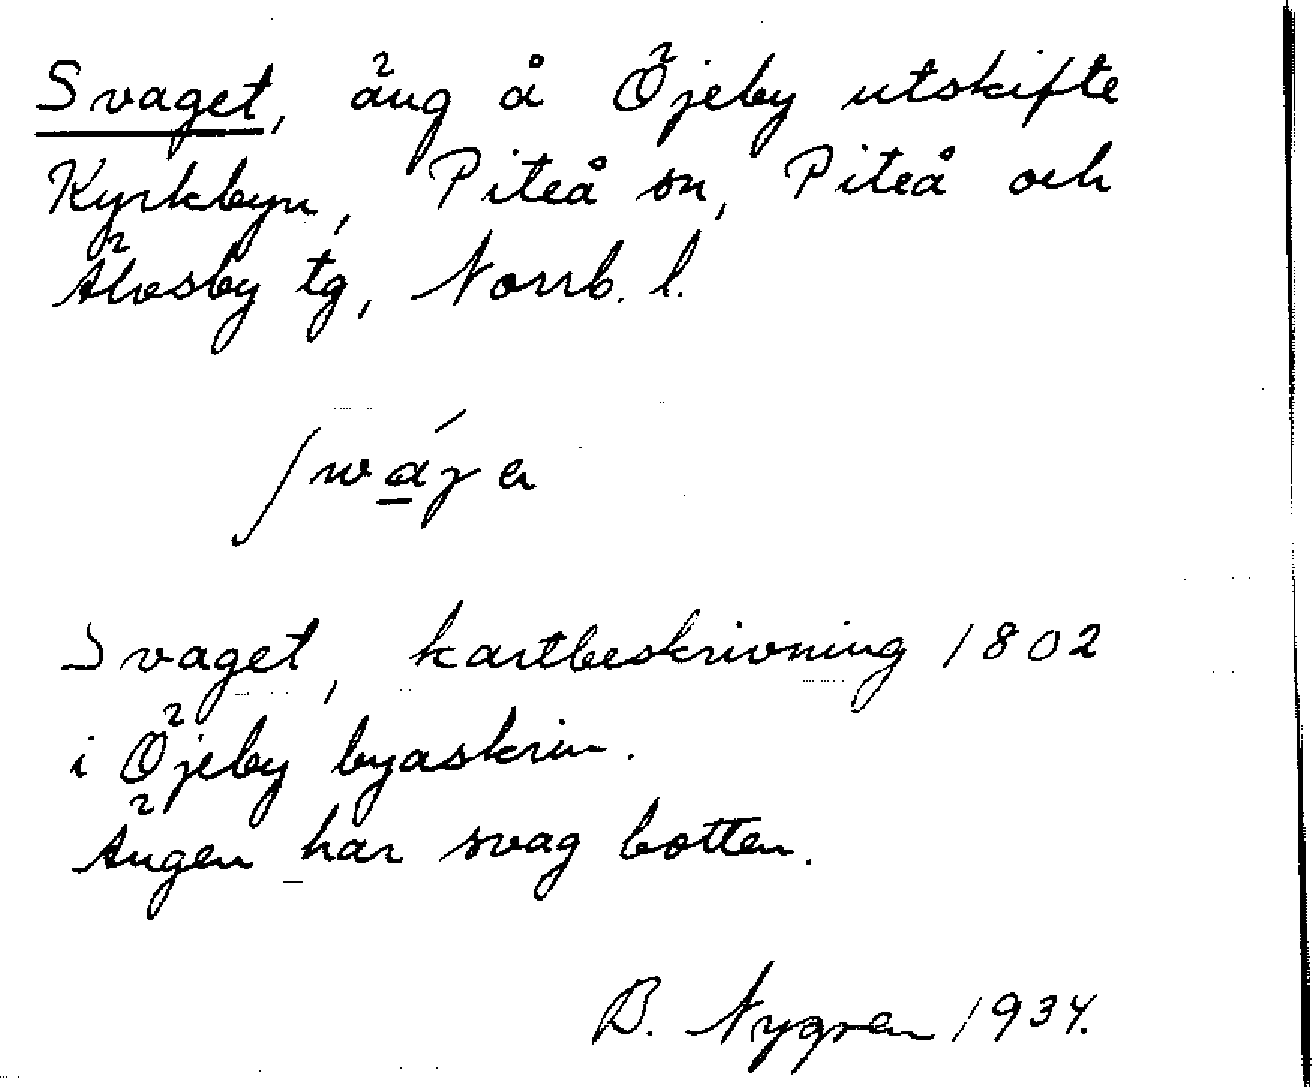 Svaget, äng å Öjeby utskifte
Kyrkbyn, Piteå sn, Piteå och
Älvsby tg, Norrb. l.
Svaget, kartbeskrivning 1802
i Öjeby byaskrin.
Ängen har svag botten.
B. Nygren 1934.